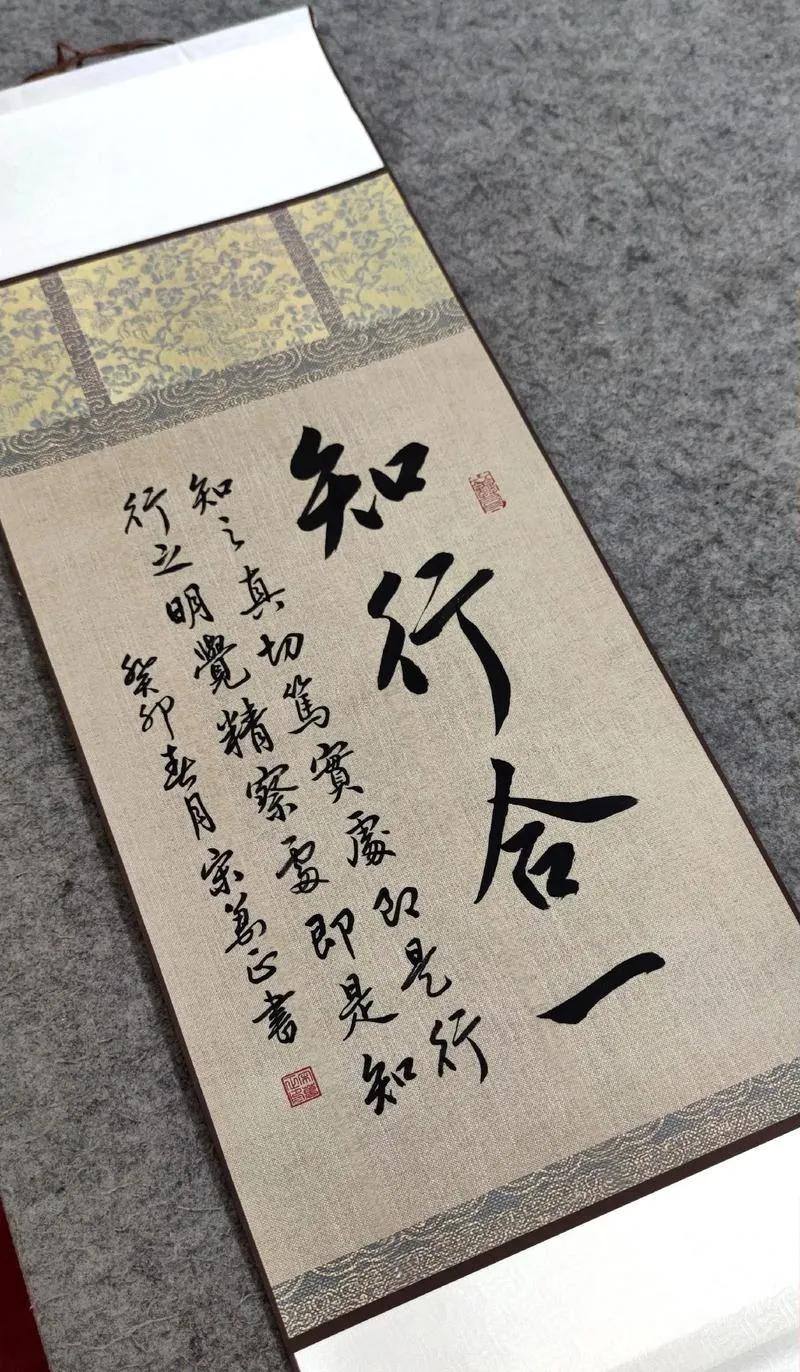 知行合一
知之真切篤實處即是行
行之明覺精察處即是知
癸卯春月宗萬正書